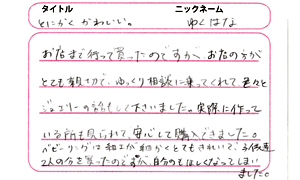 タイトル ニックネーム
とにかくかわいい。 ゆくはな
お店まで行って買ったのですが、お店の方が
とても親切で、ゆっくり相談に乗ってくれて色々と
ジュエリーの話もして下さいました。実際に作って
いる所も見られて、安心して購入できました。
ベビーリングは細工が細かくとてもきれいで、子供達
2人の分を買ったのですが、自分のもほしくなってしまい
ました。